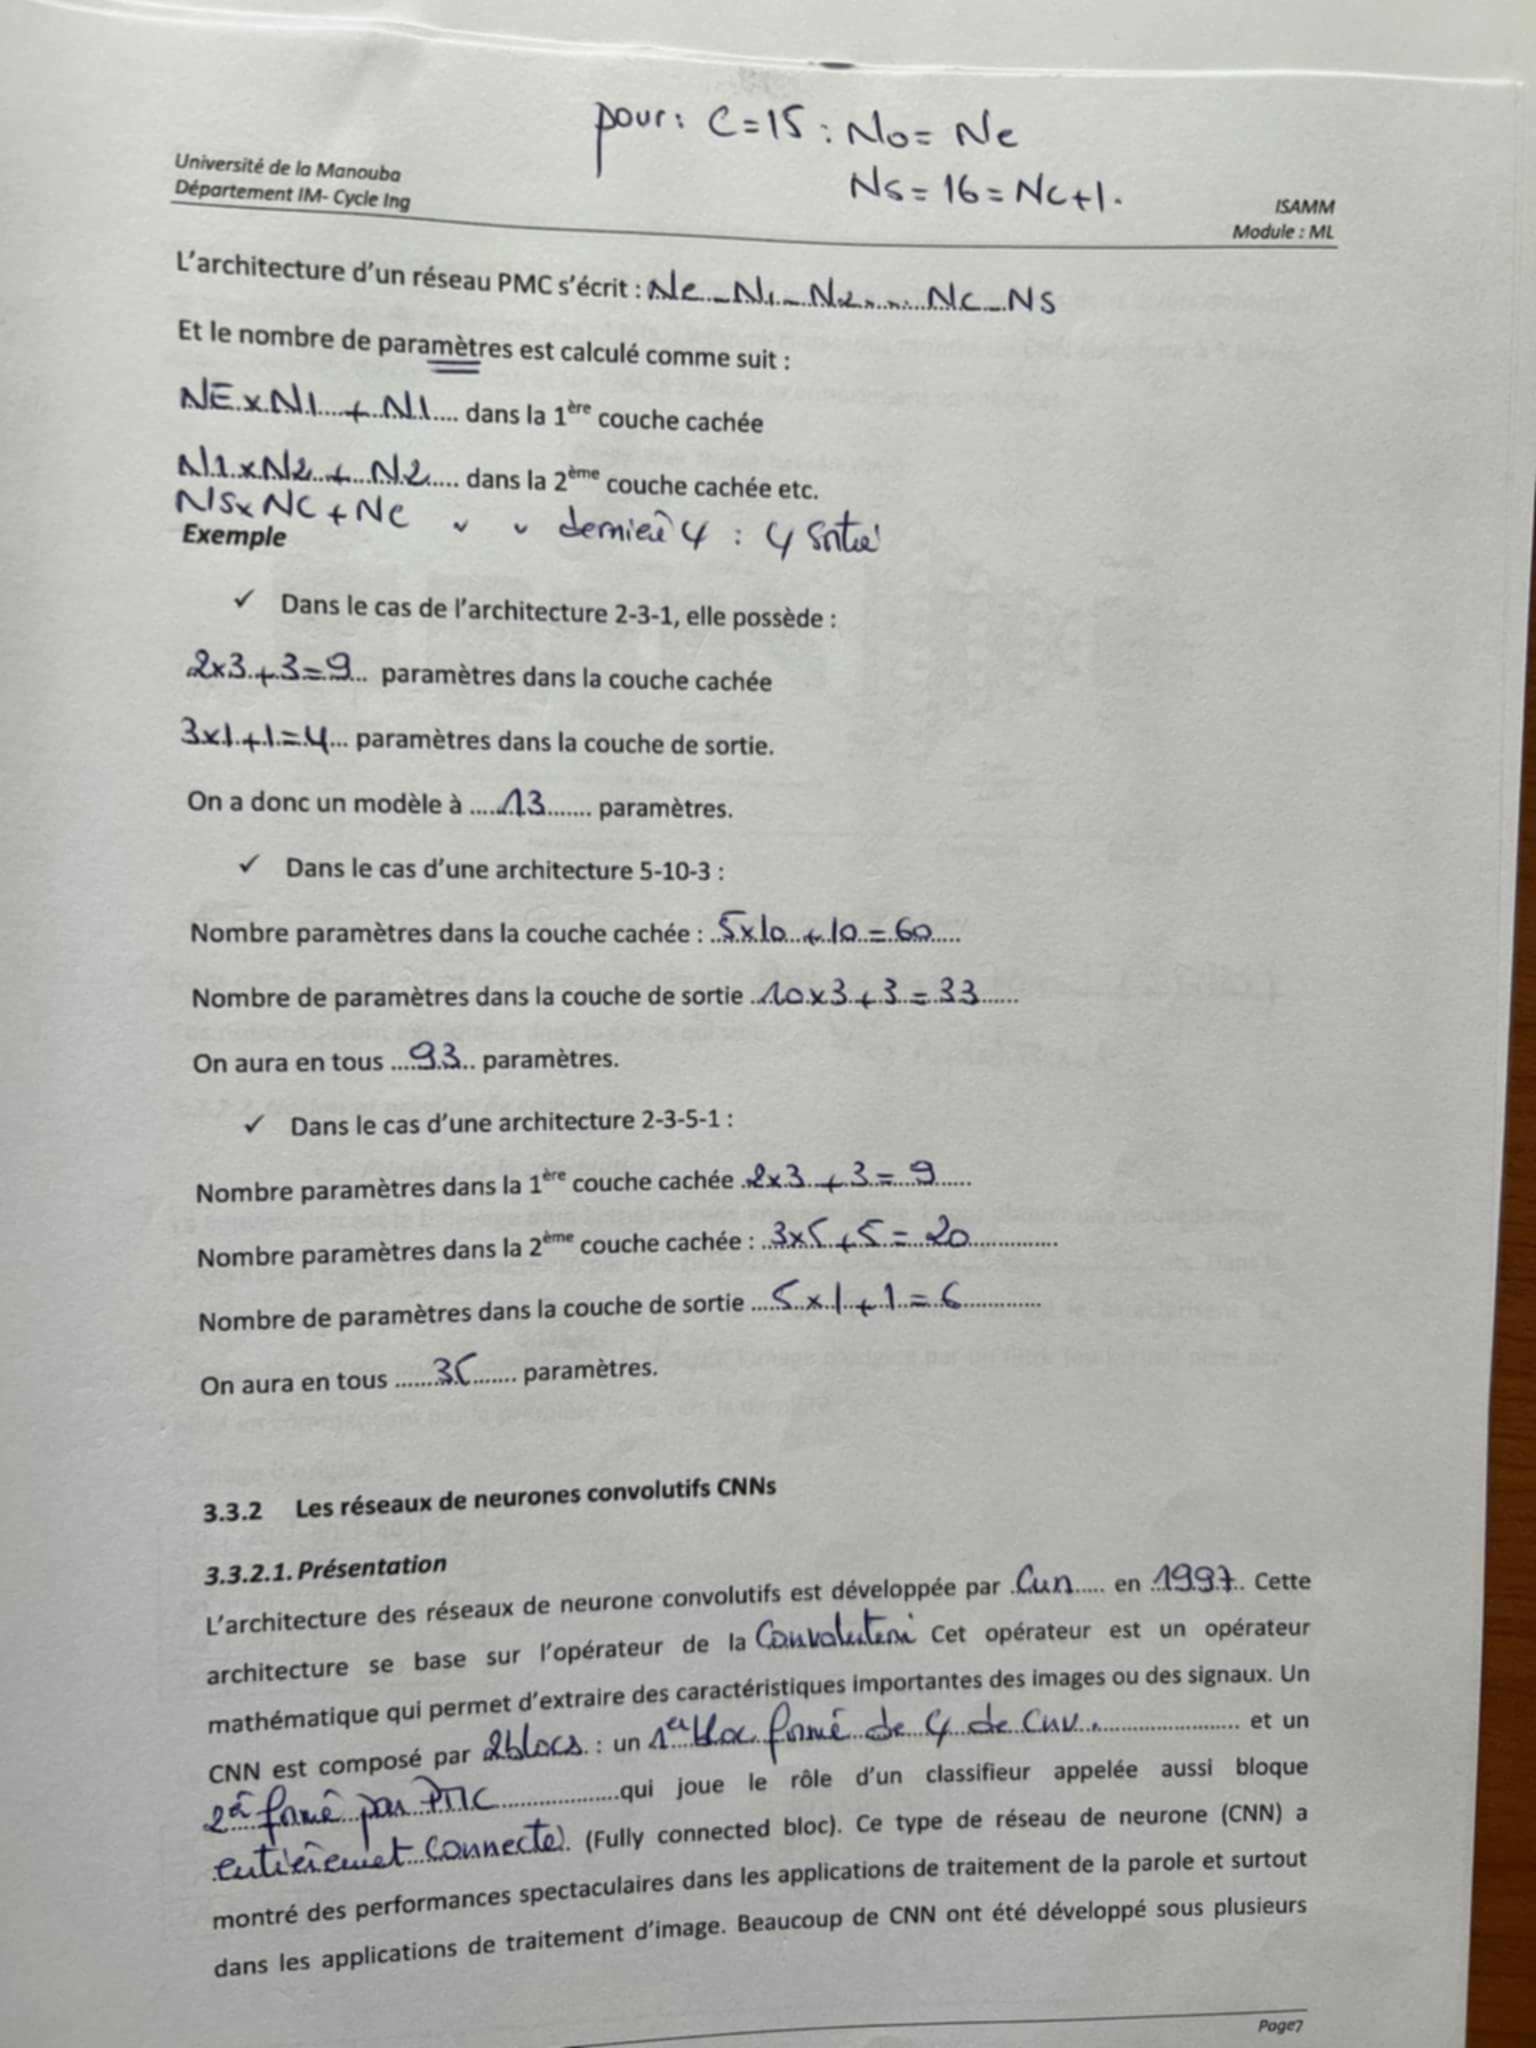 pour : C=15 : No= Ne
Ns = 16 = Nc+1.
Université de la Manouba
Département IM- Cycle Ing
ISAMM
Module : ML
L'architecture d'un réseau PMC s'écrit : Ne - N1 - N2 .... Nc - Ns
Et le nombre de paramètres est calculé comme suit :
NE x N1 + N1 .... dans la 1ère couche cachée
N1 x N2 + N2 ..... dans la 2ème couche cachée etc.
Ns x NC + Nc " " dernière 4 : 4 Sortie
Exemple
✓ Dans le cas de l'architecture 2-3-1, elle possède :
2x3+3=9... paramètres dans la couche cachée
3x1+1=4... paramètres dans la couche de sortie.
On a donc un modèle à .....13....... paramètres.
✓ Dans le cas d'une architecture 5-10-3 :
Nombre paramètres dans la couche cachée : ..5x10 + 10 = 60.....
Nombre de paramètres dans la couche de sortie ..10x3+3=33......
On aura en tous .....93... paramètres.
✓ Dans le cas d'une architecture 2-3-5-1 :
Nombre paramètres dans la 1ère couche cachée .2x3 + 3 = 9.....
Nombre paramètres dans la 2ème couche cachée : ..3x5 + 5 = 20..............
Nombre de paramètres dans la couche de sortie .....5 x 1 + 1 = 6..............
On aura en tous ......35....... paramètres.
3.3.2 Les réseaux de neurones convolutifs CNNs
3.3.2.1. Présentation
L'architecture des réseaux de neurone convolutifs est développée par .Cun..... en .1997.. Cette
architecture se base sur l'opérateur de la Convolution Cet opérateur est un opérateur
mathématique qui permet d'extraire des caractéristiques importantes des images ou des signaux. Un
CNN est composé par 2blocs : un 1er bloc formé de 4 de Cnv. ..................... et un
2è formé par PMC ..................qui joue le rôle d'un classifieur appelée aussi bloque
entièremet connecté. (Fully connected bloc). Ce type de réseau de neurone (CNN) a
montré des performances spectaculaires dans les applications de traitement de la parole et surtout
dans les applications de traitement d'image. Beaucoup de CNN ont été développé sous plusieurs
Page7